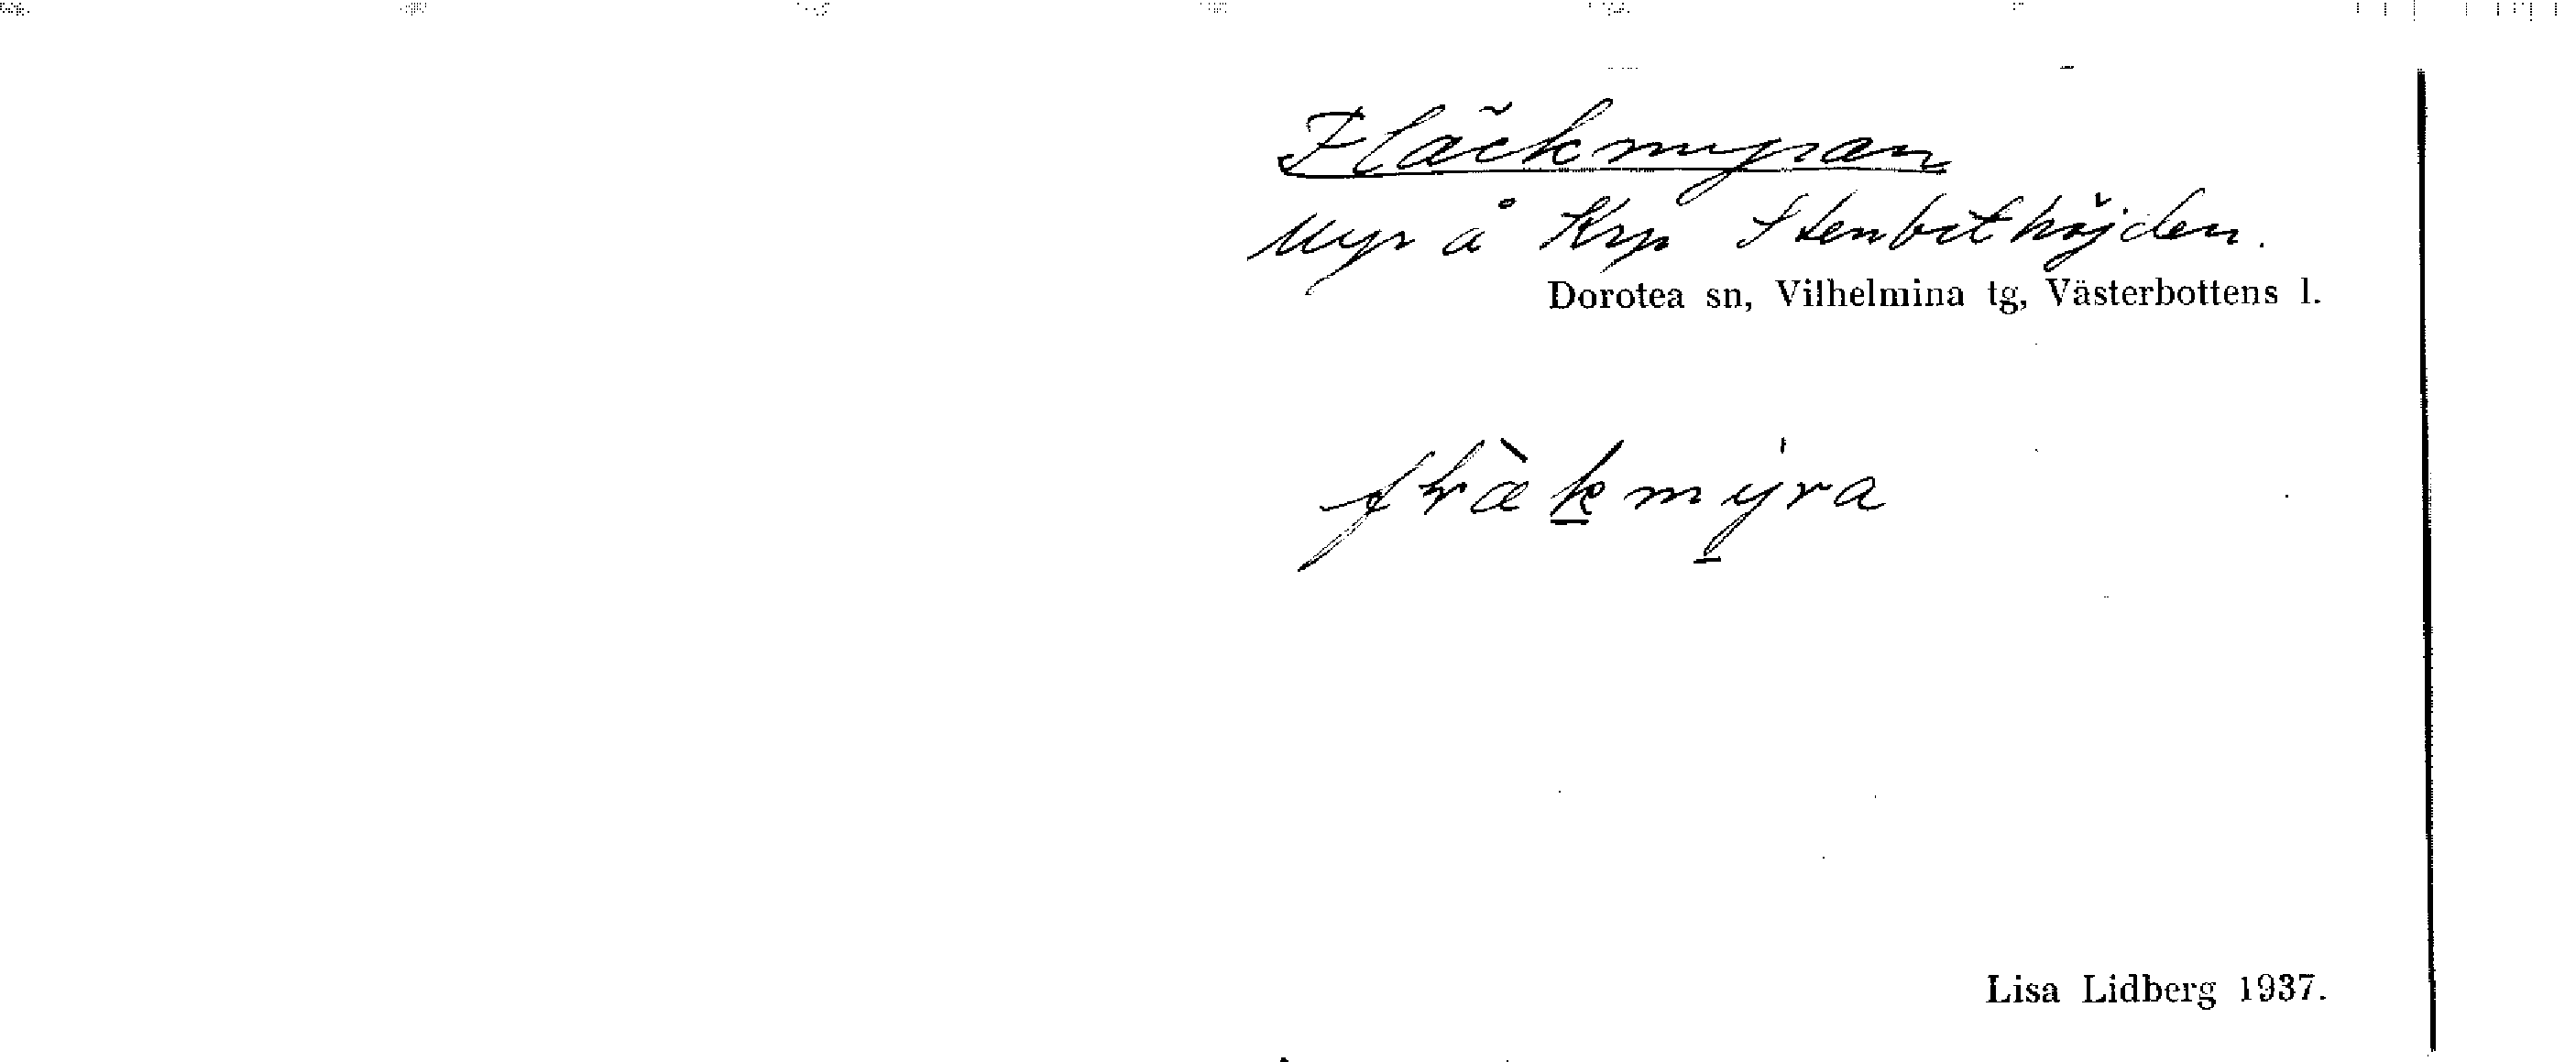 Fläckmyran
Myr å Krp Stenbithöjden.
Dorotea sn, Vilhelmina tg, Västerbottens l.
Lisa Lidberg 1937.